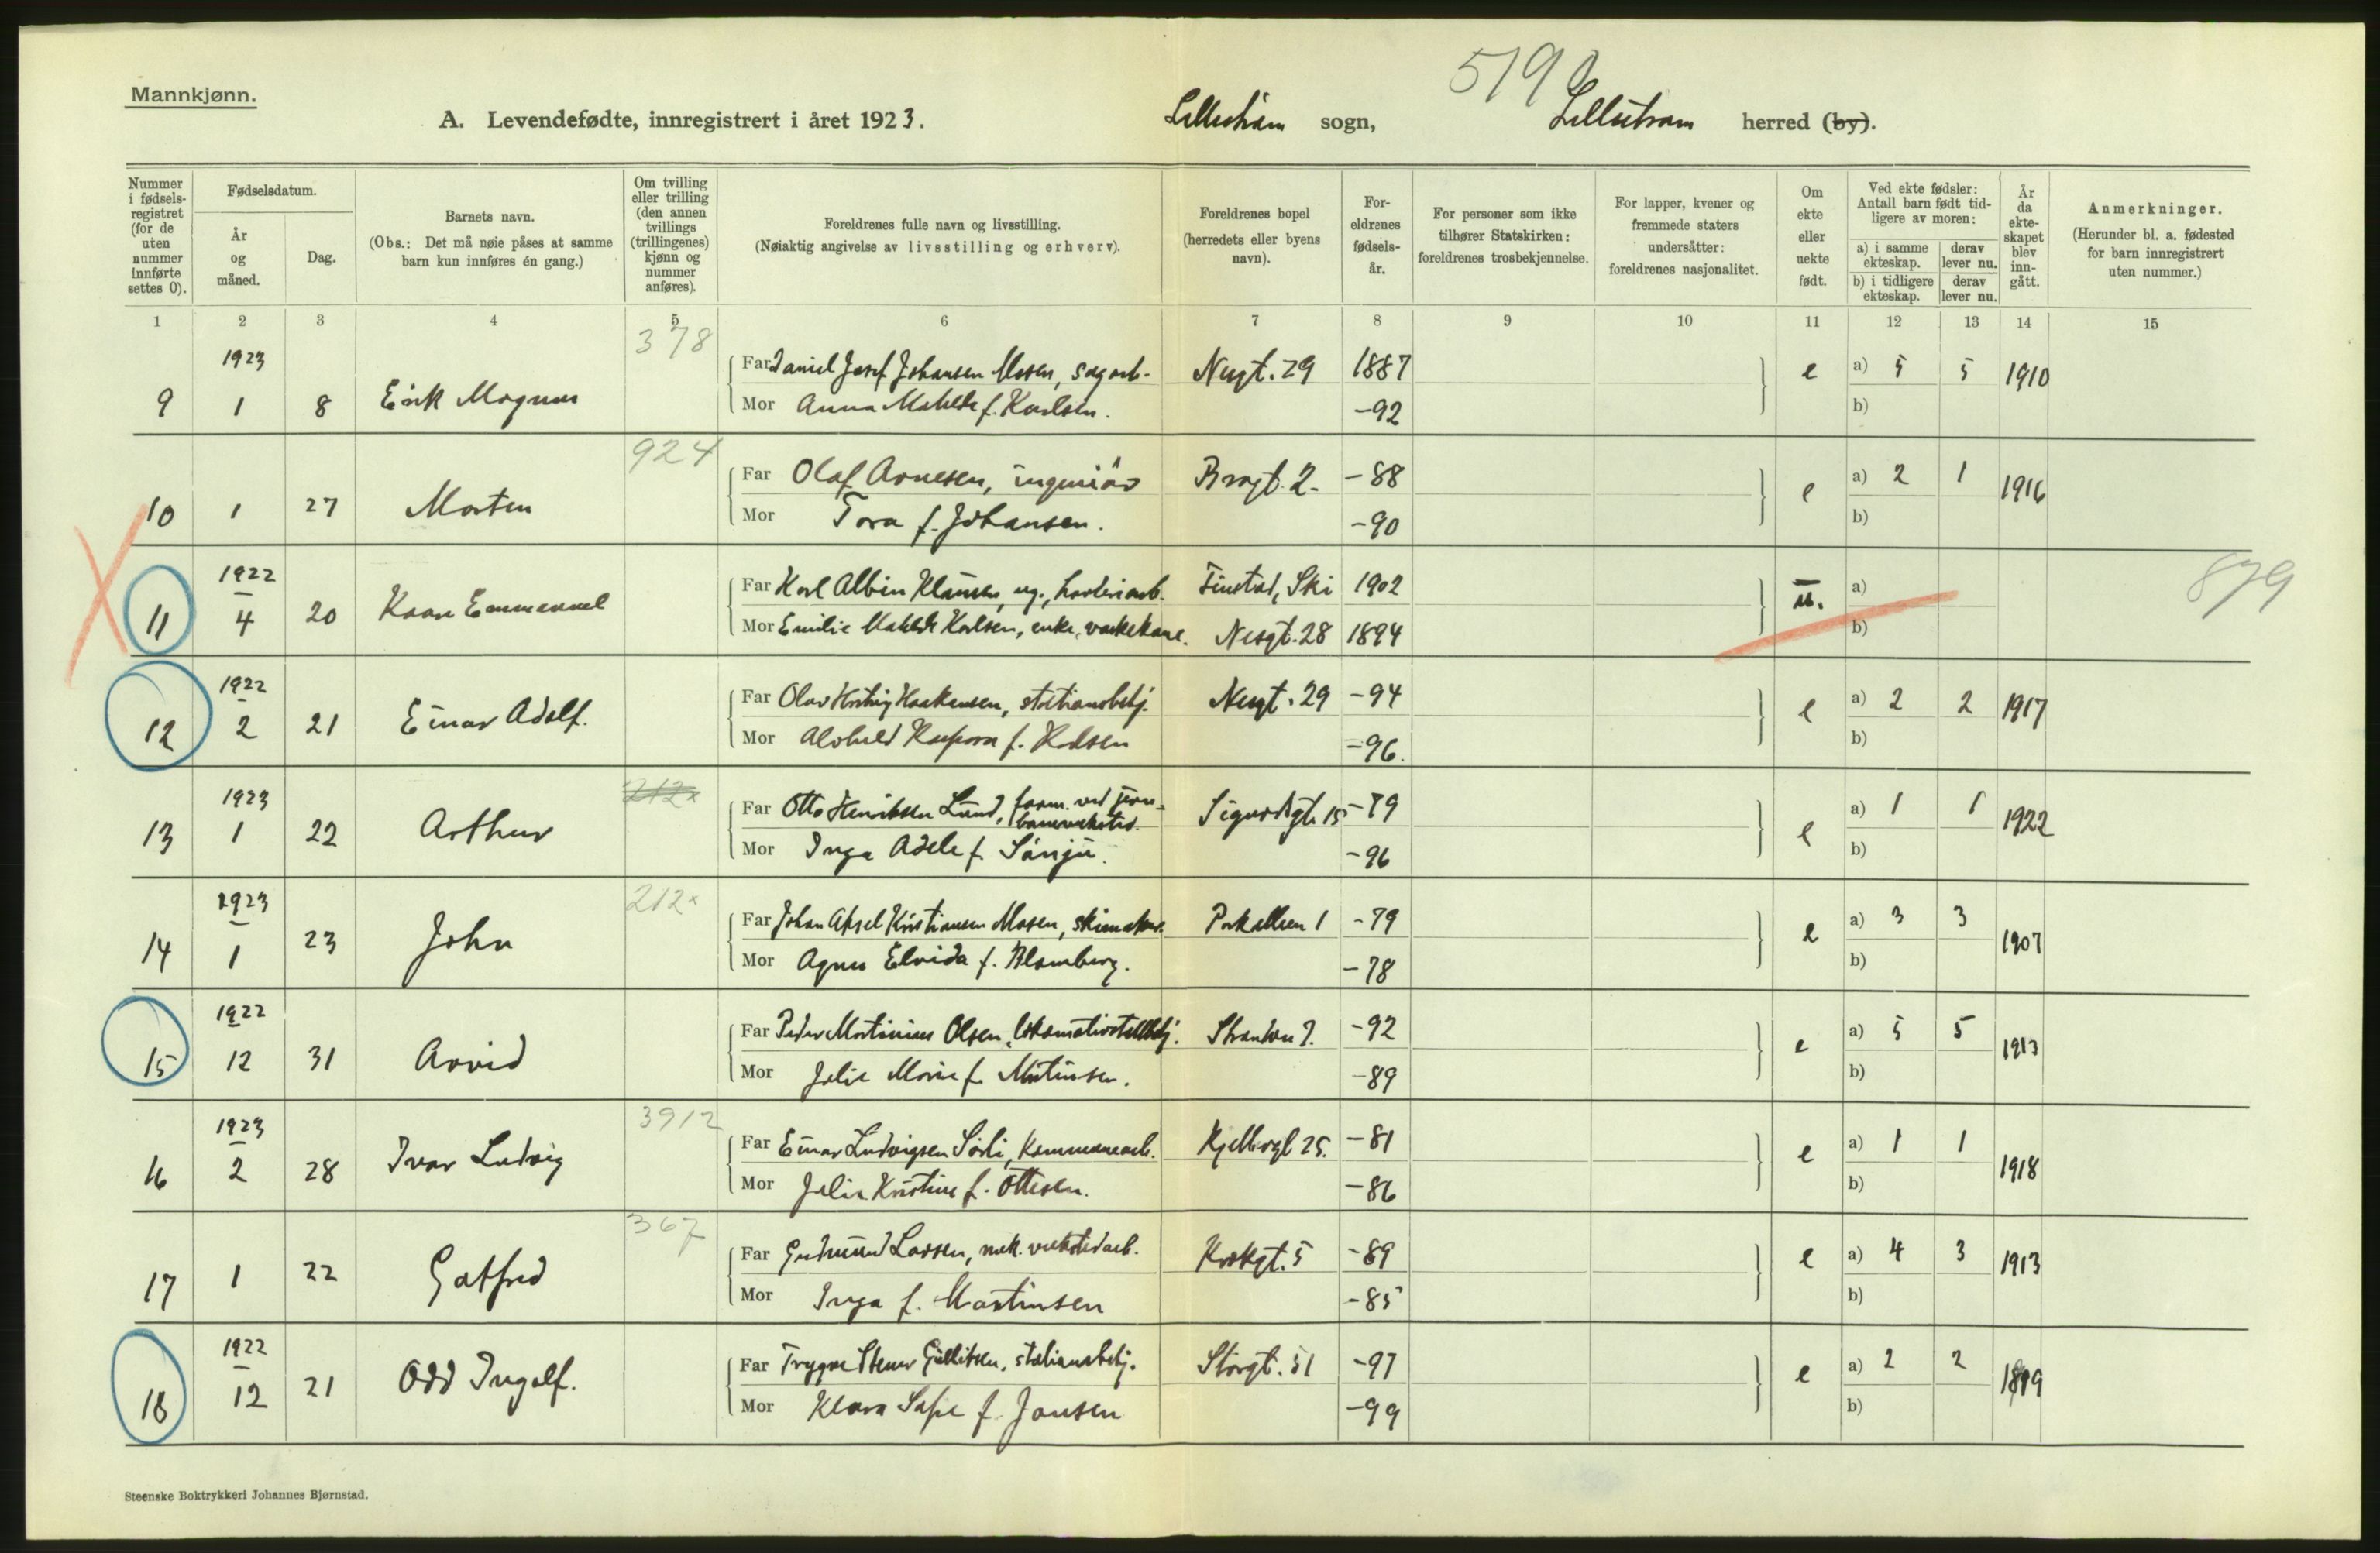 5190
Mannkjønn.
A. Levendefødte, innregistrert i året 1923. Lillestrøm sogn, Lillestrøm herred (by).
Nummer i fødselsregistret (for de uten nummer innførte settes 0).
Fødselsdatum.
År og måned.
Dag.
Barnets navn.
(Obs.: Det må nøie påses at samme barn kun innføres én gang.)
Om tvilling eller trilling (den annen tvillings (trillingenes) kjønn og nummer anføres).
Foreldrenes fulle navn og livsstilling.
(Nøiaktig angivelse av livsstilling og erhverv).
Foreldrenes bopel (herredets eller byens navn).
Foreldrenes fødselsår.
For personer som ikke tilhører Statskirken: foreldrenes trosbekjennelse.
For lapper, kvener og fremmede staters undersåtter: foreldrenes nasjonalitet.
Om ekte eller uekte født.
Ved ekte fødsler: Antall barn født tidligere av moren:
a) i samme ekteskap. derav lever nu.
b) i tidligere ekteskap. derav lever nu.
År da ekteskapet blev inngått.
Anmerkninger.
(Herunder bl. a. fødested for barn innregistrert uten nummer.)
1 2 3 4 5 6 7 8 9 10 11 12 13 14 15
378
1923
9 1 8 Erik Magnus Far Daniel Josef Johansen Mosen, sagarb. Nesgt. 29 1887 e a) 5 5 1910
Mor Anna Mathilde f. Karlsen. -92 b)
924
10 1 27 Morten Far Olaf Arnesen, ingeniør Brogt. 2. -88 e a) 2 1 1916
Mor Tora f. Johansen. -90 b)
1922
11 4 20 Kaare Emmanuel Far Karl Albin Klausen, ug., Finstad, Ski 1902 u. a) 879
Mor Emilie Mathilde Karlsen, enke, vaskekone. Nesgt. 28 1894 b)
1922
12 2 21 Einar Adolf. Far Olav Haakensen, stationsbetj. Nesgt. 29 -94 e a) 2 2 1917
Mor Alvhild f. -96. b)
212x
1923
13 1 22 Arthur Far Otto Henriksen Lund, form. ved jernbaneverksted. Sigurdsgt. 15 -79 e a) 1 1 1922
Mor Inga Adele f. -96 b)
212x
1923
14 1 23 John Far Johan Aksel Kristiansen Mosen, skomaker. Parkalleen 1 -79 e a) 3 3 1907
Mor Agnes Elvida f. Blomberg. -78 b)
1922
15 12 31 Arvid Far Peder Martinius Olsen, -92 e a) 5 5 1913
Mor Julie Marie f. Martinsen. -89 b)
3912
1923
16 2 28 Ivar Ludvig Far Einar Ludvigsen Sørli, kommunearb. 25. -81 e a) 1 1 1918
Mor Julie Kristine f. Ottesen. -86 b)
367
17 1 22 Gotfred Far Gudmund Larsen, mek. verkstedarb. 5 -89 e a) 4 3 1913
Mor Inga f. Martinsen -85 b)
1922
18 12 21 Odd Ingolf. Far Trygve Gulliksen, stationsbetj. Storgt. 51 -97 e a) 2 2 1919
Mor Klara Sofie f. Jansen -99 b)
Steenske Boktrykkeri Johannes Bjørnstad.